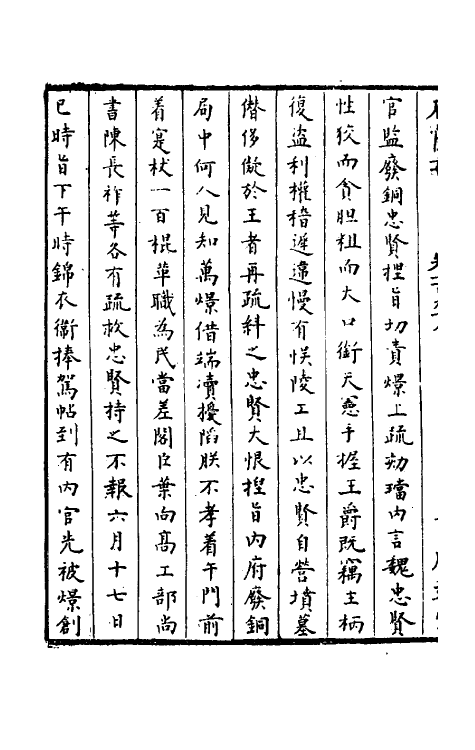 官監廢銅忠賢捏旨切責燝上疏劾璫內言魏忠賢
性狡而貪胆粗而大口銜天憲手握王爵既竊主柄
復盜利權稽遲違慢有悞陵工且以忠賢自營墳墓
僣侈儗於王者再疏糾之忠賢大恨捏旨內府廢銅
局中何人見知萬燝借端瀆擾謟朕不孝着午門前
着寔杖一百棍革職為民當差閣臣葉向髙工部尚
書陳長祚等各有疏救忠賢持之不報六月十七日
巳時旨下午時錦衣衞捧駕帖到有內官先被燝創